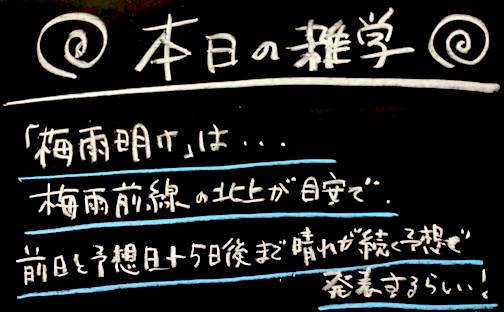 本日の雑学
「梅雨明け」は・・・
梅雨前線の北上が目安で、
前日と予想日+5日後まで晴れが続く予想で
発表するらしい!